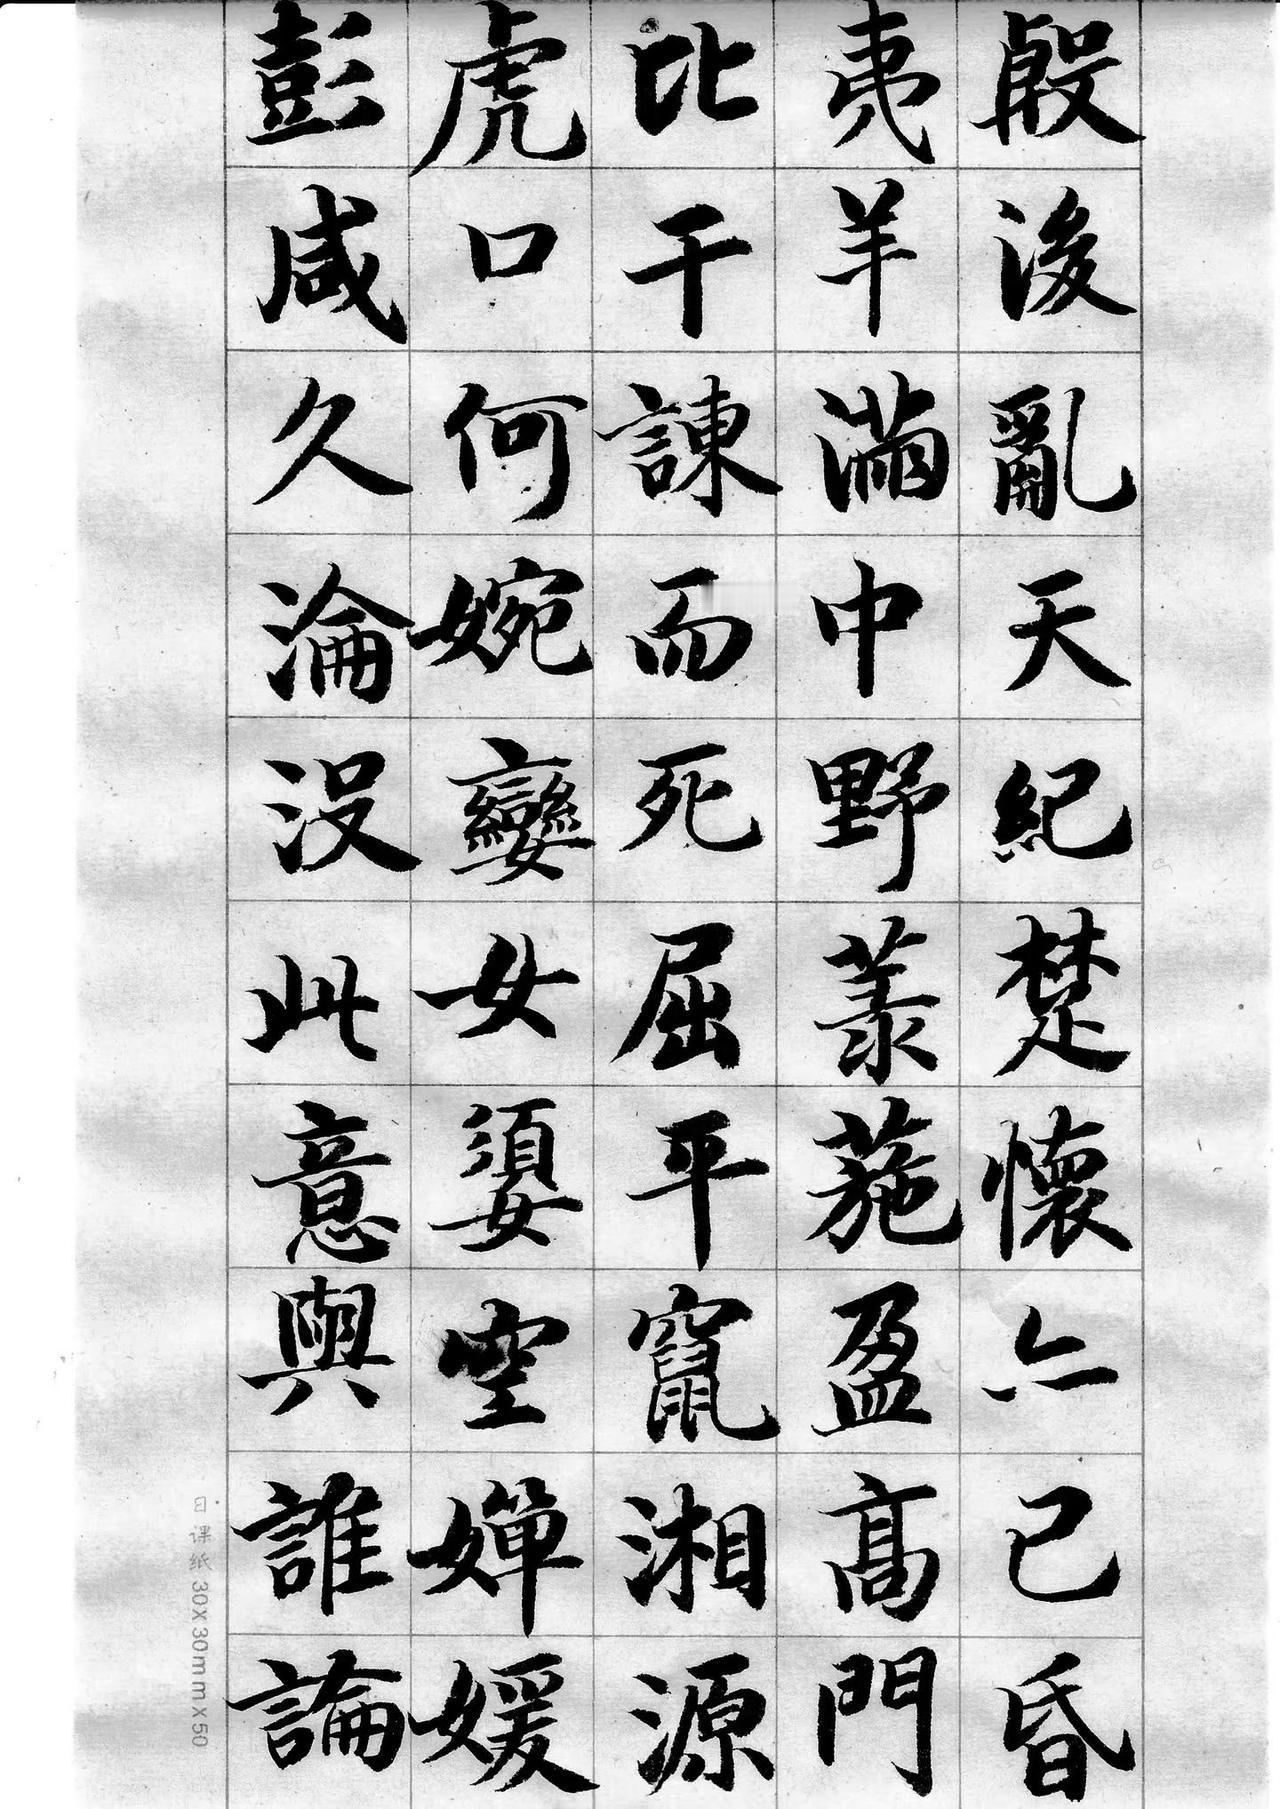 殷後亂天紀楚懷亦已昏
夷羊滿中野菉葹盈高門
比干諫而死屈平竄湘源
虎口何婉孌女嬃空嬋媛
彭咸久淪沒此意與誰論
日课纸 30X30mmx50